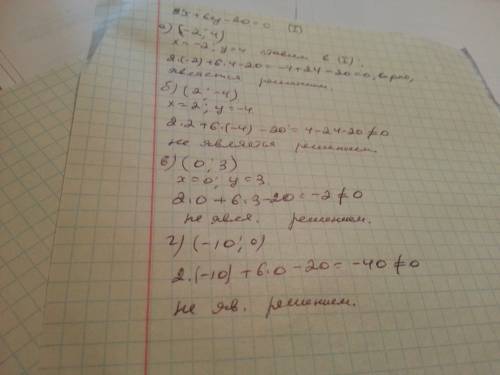 2x + 6y - 20 = 0 (I)
а) (-2; 4)
x = -2; y = 4 ставим в (I).
2·(-2) + 6·4 - 20 = -4 + 24 - 20 = 0, верно,
является решением.
б) (2; -4)
x = 2; y = -4
2·2 + 6·(-4) - 20 = 4 - 24 - 20 ≠ 0
не является решением.
в) (0; 3)
x = 0; y = 3.
2·0 + 6·3 - 20 = -2 ≠ 0
не явля. решением.
г) (-10; 0)
2·(-10) + 6·0 - 20 = -40 ≠ 0
не яв. решением.